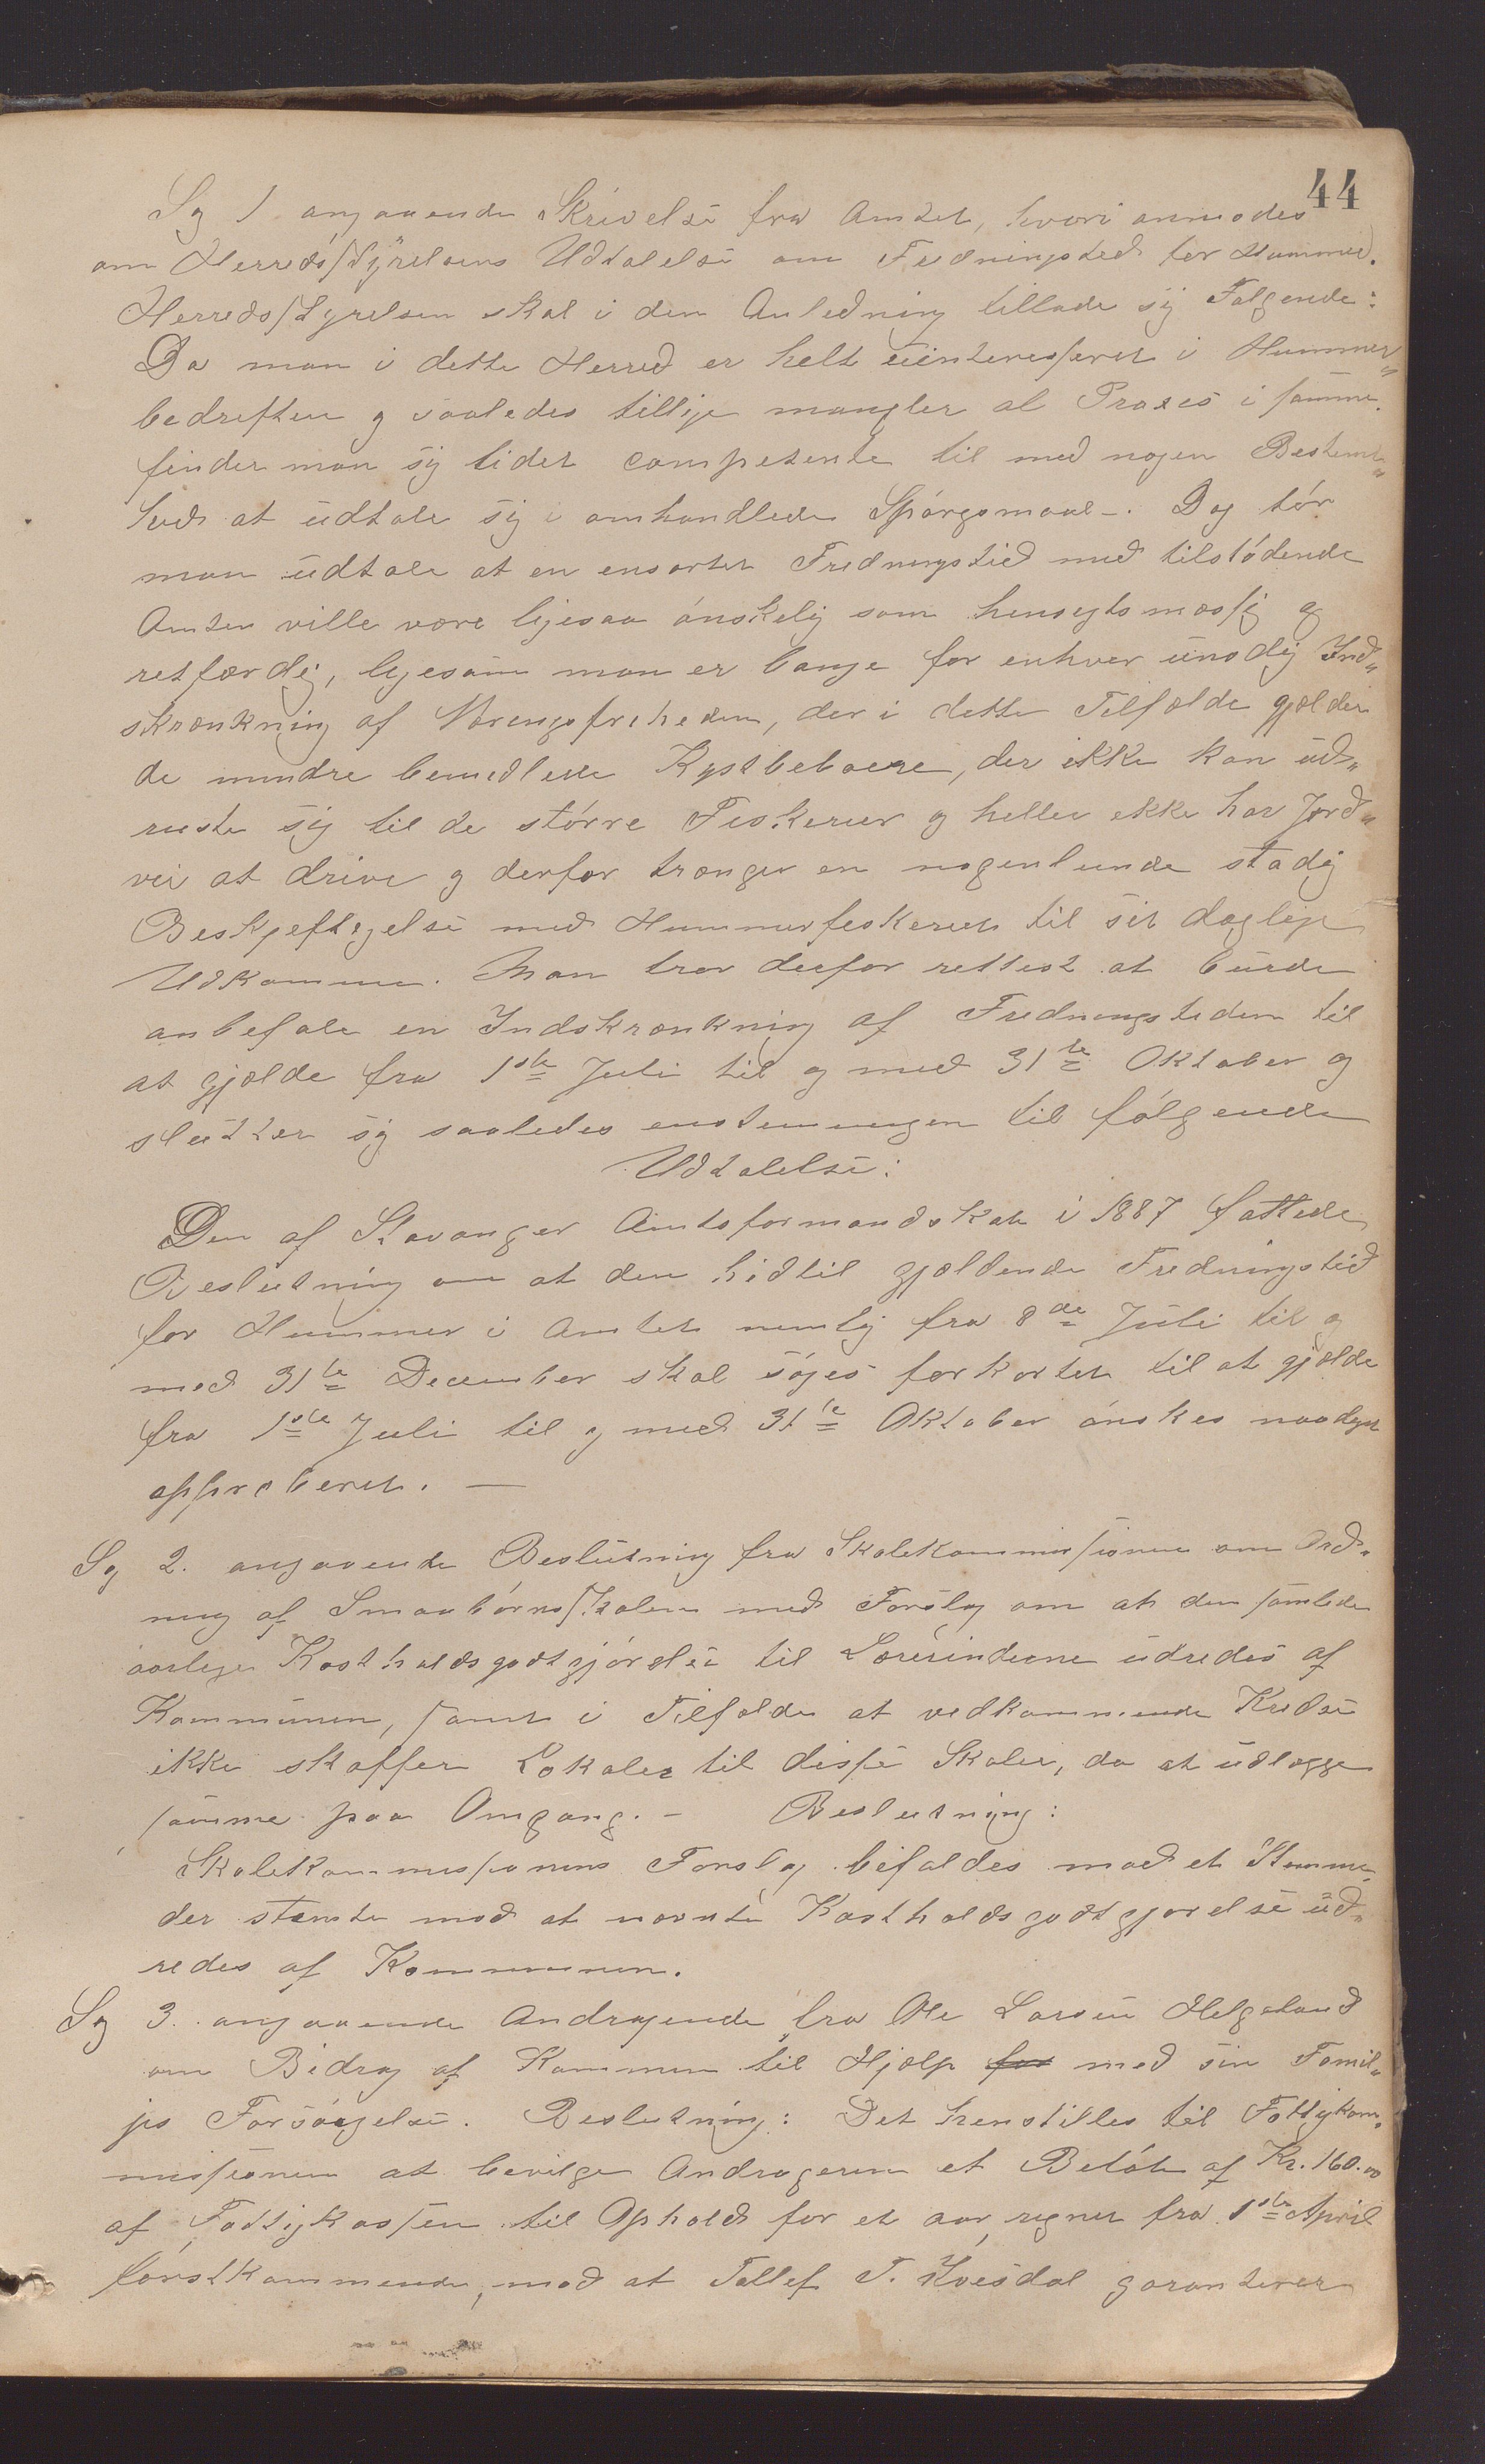 44
Sag 1 angaaende Skrivelse fra Amtet, hvori anmodes
om Herredsstyrelsens Udtalelse om Fredningstid for Hummer.
Herredsstyrelsen skal i den Anledning tillade sig Følgende:
Da man i dette Herred er helt uinteresseret i Hummer„
bedriften og saaledes tillige mangler al Praxis i samme,
finder man sig lidet competente til med nogen Bestemt„
hed at udtale sig i omhandlede Spørgsmaal. Dog tør
man udtale at en ensartet Fredningstid med tilstødende
Amter ville være ligesaa ønskelig som hensigtsmæssig og
retfærdig, ligesom man er bange for enhver unødig Ind„
skrænkning af Næringsfriheden, der i dette Tilfælde gjælder
de mindre bemidlede Kystbeboere, der ikke kan ud„
ruste sig til de større Fiskerier og heller ikke har Jord„
vei at drive og derfor trænger en nogenlunde stadig
Beskjeftigelse med Hummerfiskeriet til sit daglige
Udkomme. Man tror derfor rettest at burde
anbefale en Indskrænkning af Fredningstiden til
at gjælde fra 1ste Juli til og med 31te Oktober og
slutter sig saaledes enstemmigen til følgende
Udtalelse:
Den af Stavanger Amtsformandskab i 1887 fattede
Beslutning om at den hidtil gjældende Fredningstid
for Hummer i Amtet nemlig fra 8de Juli til og
med 31te December skal søges forkortet til at gjælde
fra 1ste Juli til og med 31te Oktober ønskes naadigst
approberet. —
Sag 2. angaaende Beslutning fra Skolekommissionen om Ord„
ning af Smaabørnsskolen med Forslag om at den samlede
aarlige Kostholdsgodtgjørelse til Lærerinderne udredes af
Kommunen, samt i Tilfælde at vedkommende Kredse
ikke skaffer Lokaler til disse Skoler, da at udlægge
samme paa Omgang. – Beslutning:
Skolekommissionens Forslag bifaldes mod et Stemme,
der stemte mod at nævnte Kostholdsgodtgjørelse ud„
redes af Kommunen.
Sag 3. angaaende Andragende fra Ole Larsen Helgeland
om Bidrag af Kommunen til Hjælp for med sin Famil„
jes Forsørgelse. Beslutning: Det henstilles til Fattigkom„
missionen at bevilge Andrageren et Beløb af Kr. 160.00
af Fattigkassen til Ophold for et aar, regnet fra 1ste April
førstkommende, mod at Tollef T. garanterer